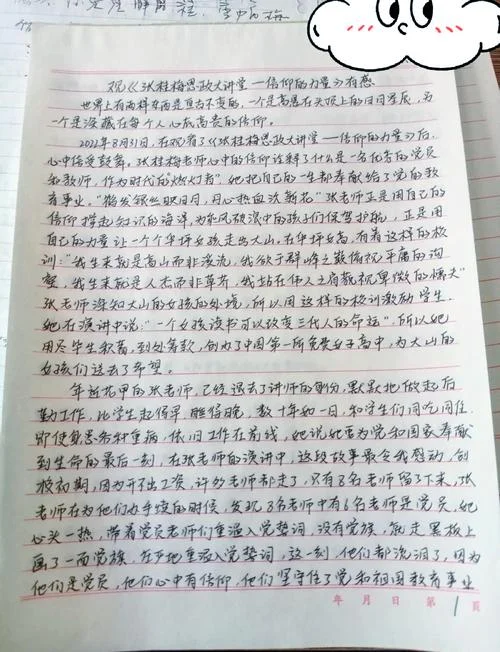 观《张桂梅思政大讲堂—信仰的力量》有感
世界上有两样东西是亘古不变的,一个是高悬在头顶上的日月星辰,另
一个是深藏在每个人心底高贵的信仰。
2022年8月31日,在观看了《张桂梅思政大讲堂—信仰的力量》后,
心中倍受鼓舞。张桂梅老师心中的信仰诠释了什么是一名优秀的党员
和教师,作为时代的"燃灯者",她把自己的一生都奉献给了党的教
育事业。"熬发银丝映日月,丹心热血沃新花"张老师正是用自己的
信仰撑起知识的海洋,为乘风破浪中的孩子们保驾护航,正是用
自己的力量让一个个华坪女孩走出大山。在华坪女高,有着这样的校
训:"我生来就是高山而非溪流,我欲于群峰之巅俯视平庸的沟
壑,我生来就是人杰而非草芥,我站在伟人之肩藐视卑微的懦夫"
张老师深知大山的女孩的处境,所以用这样的校训激励学生。
她在演讲中说:"一个女孩读书可以改变三代人的命运",所以她
用尽毕生积蓄,到处筹款,创办了中国第一所免费女子高中,为大山的
女孩们送去了希望。
年近花甲的张老师,已经退去了讲师的身份,默默地做起后
勤工作,比学生起得早,睡得晚,数十年如一日,和学生们同吃同住,
即使身患各种重病,依旧工作在前线,她说她要为党和国家奉献
到生命的最后一刻,在张老师的演讲中,这段故事最令我感动,创
校初期,因为开不出工资,许多老师都走了,只有8名老师留了下来,张
老师在为他们办手续的时候,发现8名老师中有6名老师是党员,她
心头一热,带着党员老师们重温入党誓词,没有党旗,就走黑板上
画了一面党旗,庄严地重温入党誓词,这一刻,他们都流泪了,因为
他们是党员,他们心中有信仰,他们坚守住了党和祖国教育事业
年 月 日 第 1 頁